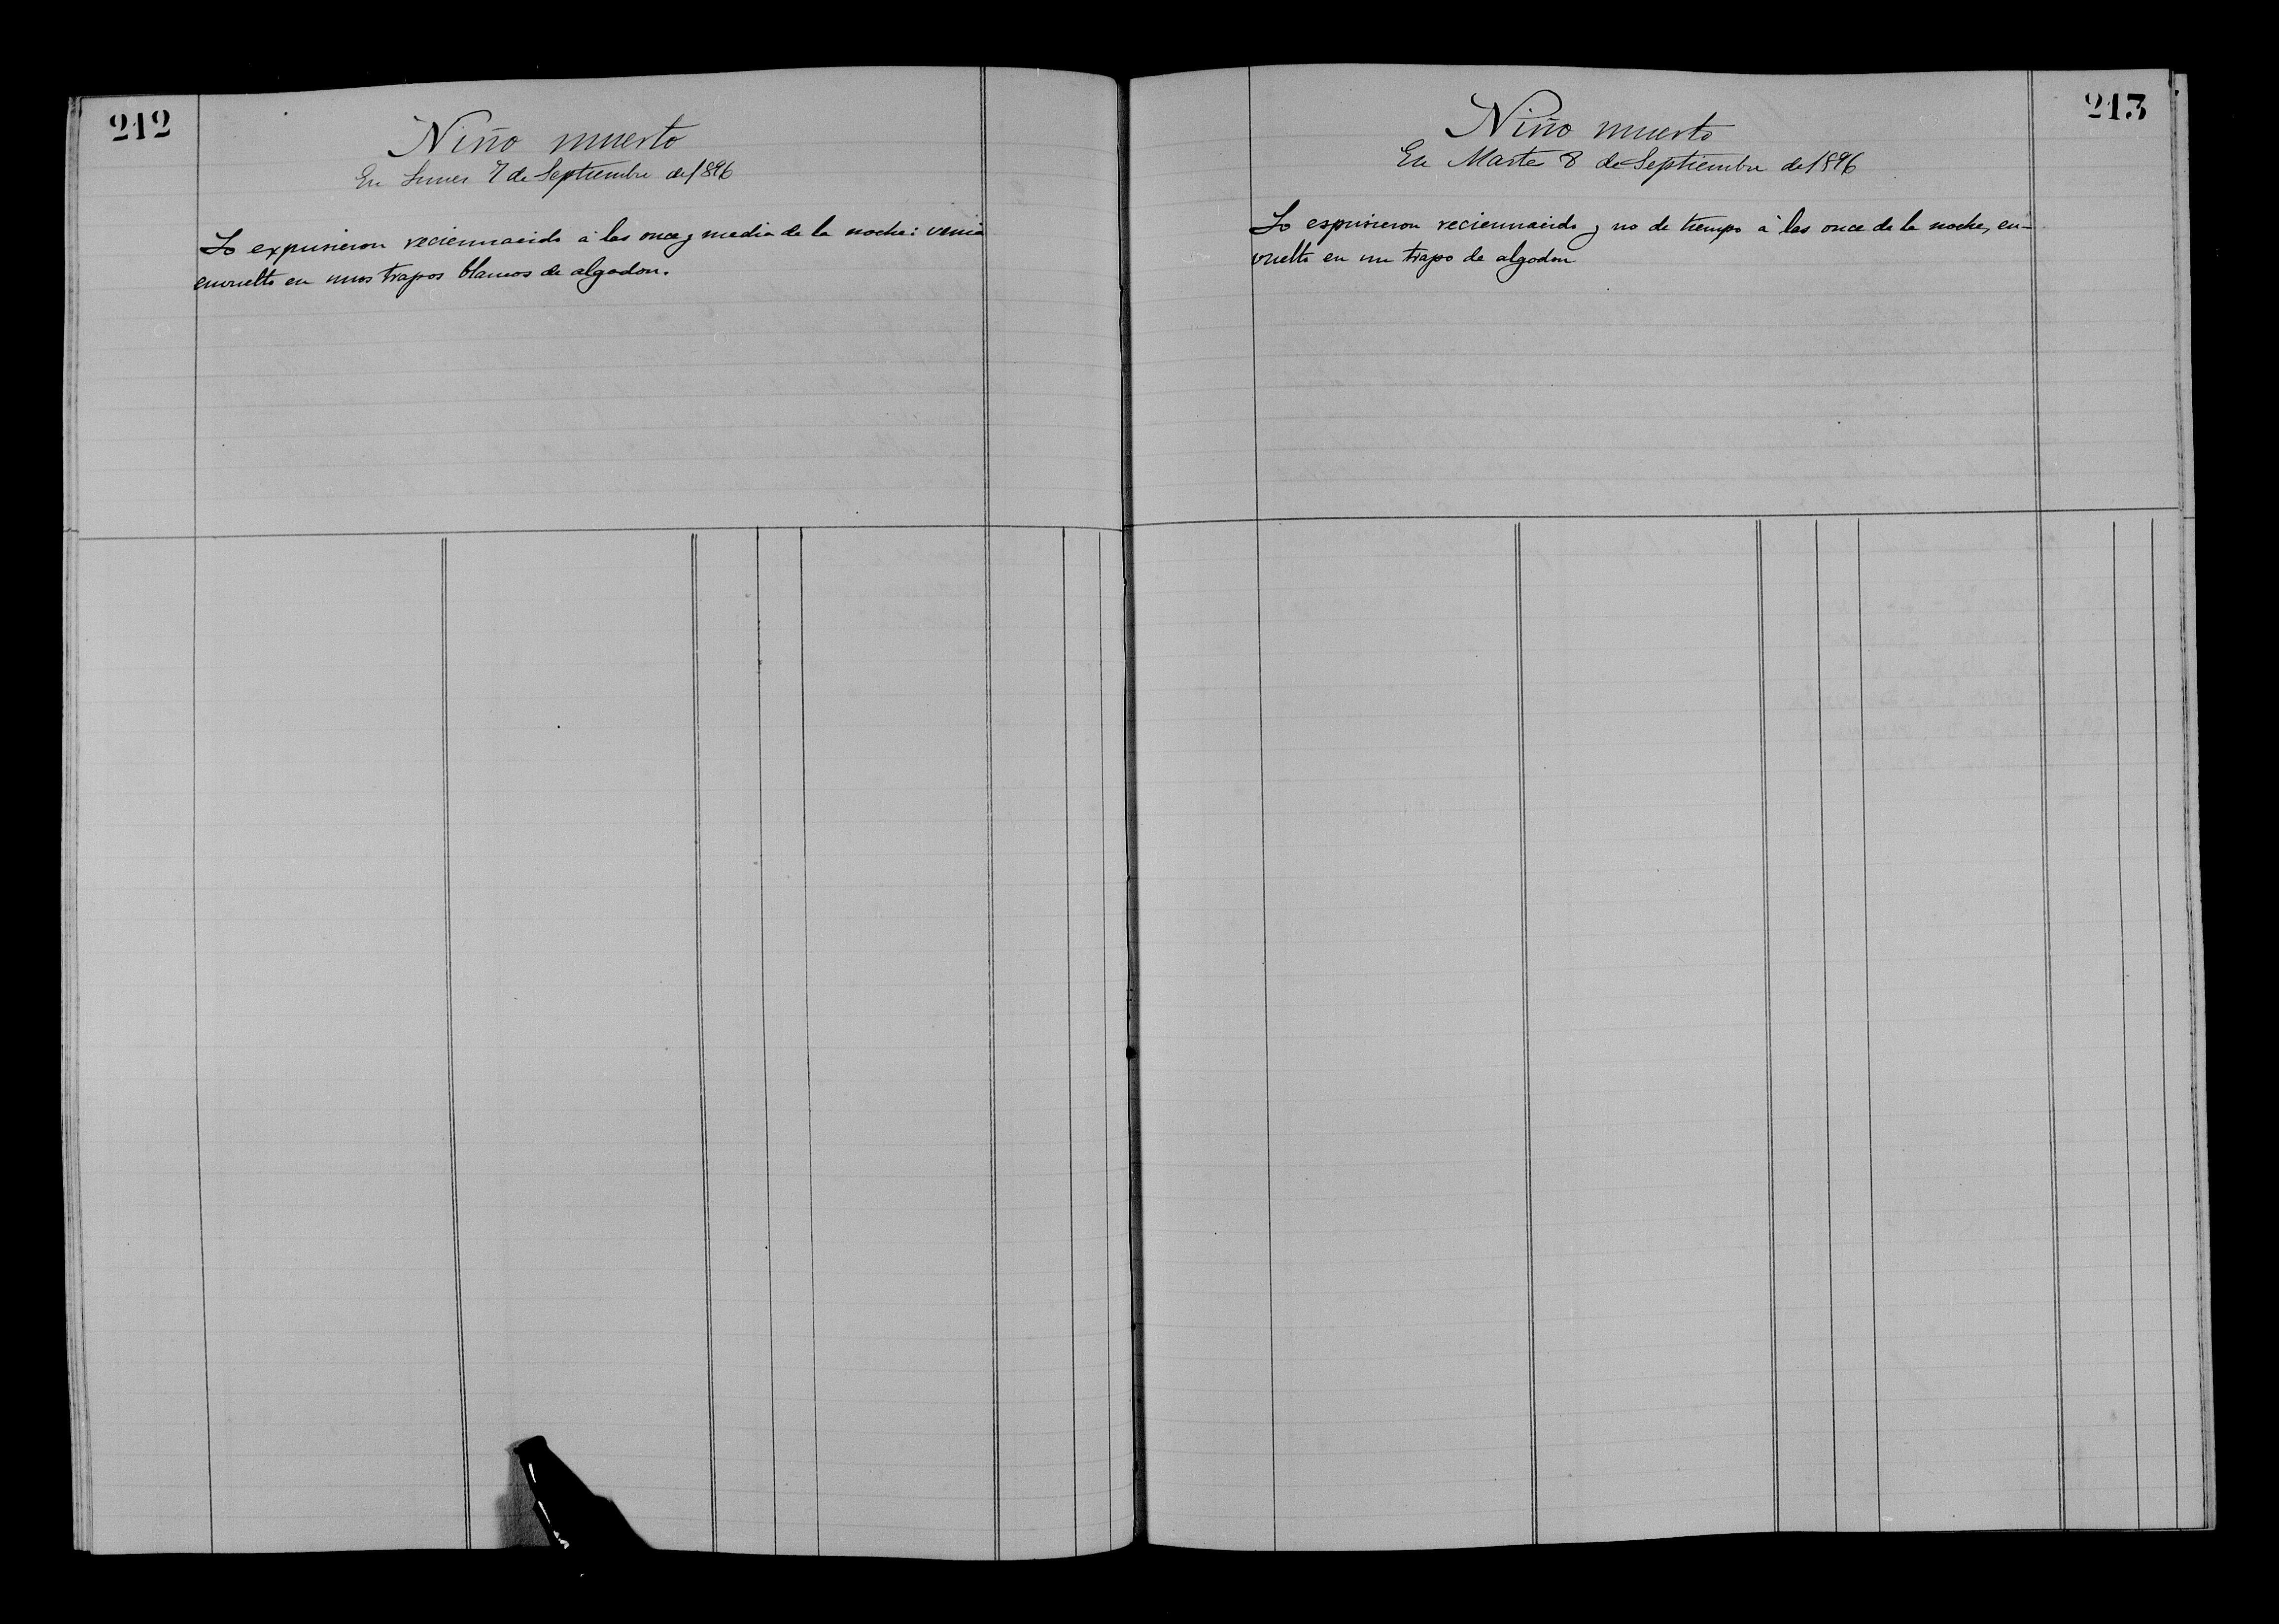 212
Niño muerto
En Lunes 7 de Septiembre de 1896
Lo expusieron reciennacido á las once y media de la noche: venia
envuelto en unos trapos blancos de algodon.
213
Niño muerto
En Martes 8 de Septiembre de 1896
Lo espusieron reciennacido y no de tiempo á las once de la noche, en-
vuelto en un trapo de algodon